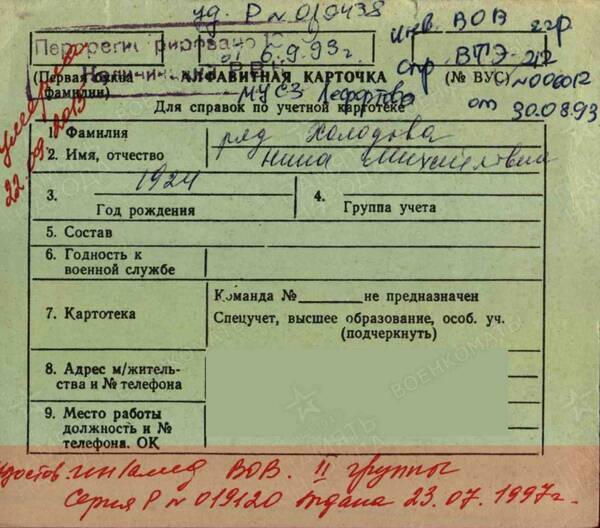 уд. Р № 019438
Перерегистрировано
6.9.93г.
инв. ВОВ 2гр.
стр. ВТЭ-212
№ 006012
от 30.08.93
(Первая буква фамилии)
АЛФАВИТНАЯ КАРТОЧКА
(№ ВУС)
МУСЗ Лефортово
Для справок по учетной картотеке
умерла
22.09.2013
1. Фамилия ряд Холодова
2. Имя, отчество Нина Михайловна
3. 1924
Год рождения
4.
Группа учета
5. Состав
6. Годность к
военной службе
7. Картотека
Команда №______не предназначен
Спецучет, высшее образование, особ. уч.
(подчеркнуть)
8. Адрес м/житель-
ства и № телефона
9. Место работы
должность и №
телефона. ОК
Удостов. инвалид ВОВ. II группы
Серия Р № 019120 выдана 23.07.1997г.